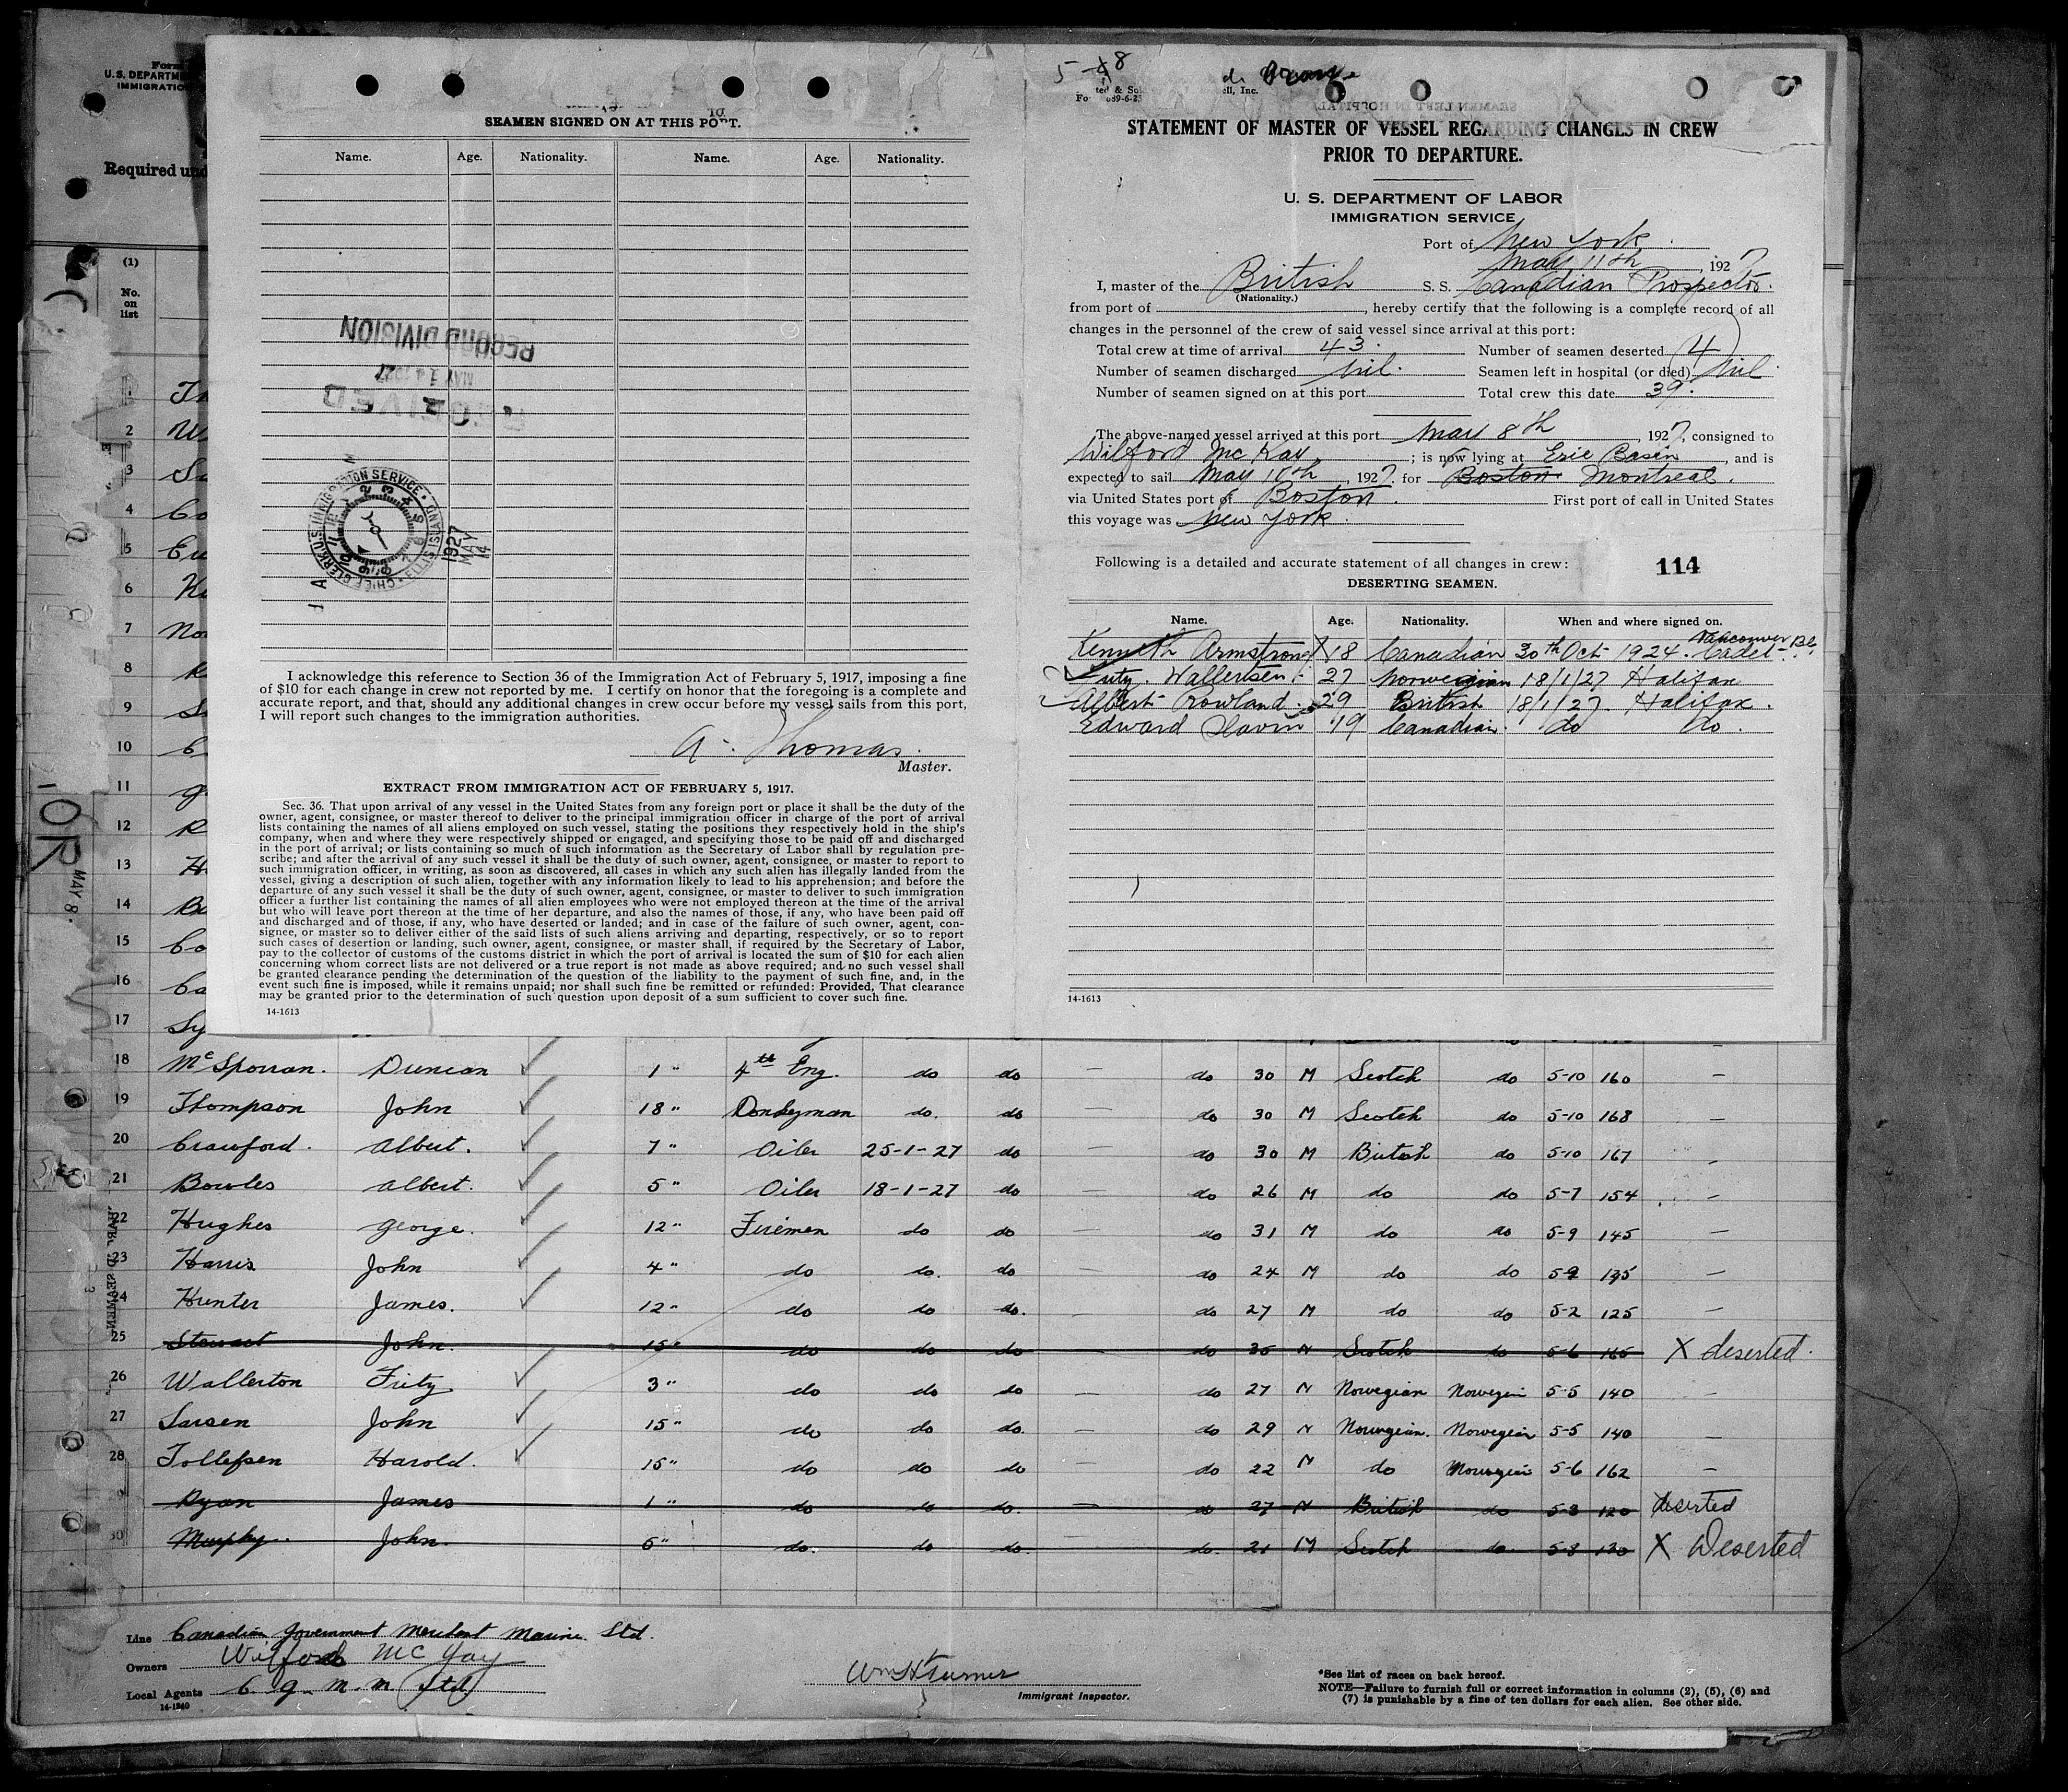 Form
U.S. DEPARTM
IMMIGRATIO
Required und
(1)
No.
on
list
SEAMEN SIGNED ON AT THIS PORT.
Name. Age. Nationality. Name. Age. Nationality.
RECORD DIVISION
MAY 14 1927
RECEIVED
CHIEF CLERK U.S. IMMIGRATION SERVICE ELLIS ISLAND
1927
MAY
14
I acknowledge this reference to Section 36 of the Immigration Act of February 5, 1917, imposing a fine
of $10 for each change in crew not reported by me. I certify on honor that the foregoing is a complete and
accurate report, and that, should any additional changes in crew occur before my vessel sails from this port,
I will report such changes to the immigration authorities.
A. Thomas
Master.
EXTRACT FROM IMMIGRATION ACT OF FEBRUARY 5, 1917.
Sec. 36. That upon arrival of any vessel in the United States from any foreign port or place it shall be the duty of the
owner, agent, consignee, or master thereof to deliver to the principal immigration officer in charge of the port of arrival
lists containing the names of all aliens employed on such vessel, stating the positions they respectively hold in the ship's
company, when and where they were respectively shipped or engaged, and specifying those to be paid off and discharged
in the port of arrival; or lists containing so much of such information as the Secretary of Labor shall by regulation pre-
scribe; and after the arrival of any such vessel it shall be the duty of such owner, agent, consignee, or master to report to
such immigration officer, in writing, as soon as discovered, all cases in which any such alien has illegally landed from the
vessel, giving a description of such alien, together with any information likely to lead to his apprehension; and before the
departure of any such vessel it shall be the duty of such owner, agent, consignee, or master to deliver to such immigration
officer a further list containing the names of all alien employees who were not employed thereon at the time of the arrival
but who will leave port thereon at the time of her departure, and also the names of those, if any, who have been paid off
and discharged and of those, if any, who have deserted or landed; and in case of the failure of such owner, agent, con-
signee, or master so to deliver either of the said lists of such aliens arriving and departing, respectively, or so to report
such cases of desertion or landing, such owner, agent, consignee, or master shall, if required by the Secretary of Labor,
pay to the collector of customs of the customs district in which the port of arrival is located the sum of $10 for each alien
concerning whom correct lists are not delivered or a true report is not made as above required; and no such vessel shall
be granted clearance pending the determination of the question of the liability to the payment of such fine, and, in the
event such fine is imposed, while it remains unpaid; nor shall such fine be remitted or refunded: Provided, That clearance
may be granted prior to the determination of such question upon deposit of a sum sufficient to cover such fine.
14-1613
STATEMENT OF MASTER OF VESSEL REGARDING CHANGES IN CREW
PRIOR TO DEPARTURE.
U. S. DEPARTMENT OF LABOR
IMMIGRATION SERVICE
Port of New York
May 11th, 1927
I, master of the British S. S. Canadian Prospector.
(Nationality.)
from port of , hereby certify that the following is a complete record of all
changes in the personnel of the crew of said vessel since arrival at this port:
Total crew at time of arrival 43. Number of seamen deserted 4
Number of seamen discharged Nil. Seamen left in hospital (or died) Nil.
Number of seamen signed on at this port Total crew this date 39.
The above-named vessel arrived at this port May 8th, 1927, consigned to
Wilford McKay; is now lying at Erie Basin, and is
expected to sail May 11th, 1927, for Boston Montreal.
via United States port of Boston. First port of call in United States
this voyage was New York.
Following is a detailed and accurate statement of all changes in crew: 114
DESERTING SEAMEN.
Name. Age. Nationality. When and where signed on.
Kenneth Armstrong X 18 Canadian 30th Oct 1924. Vancouver B.C. Cadet
Fritz Wallertsen 27 Norwegian 18/1/27 Halifax
Albert Rowland. 29 British 18/1/27. Halifax.
Edward Slavin 19 Canadian. do do.
14-1613
18 McSporran. Duncan 1" 4th Eng. do do — do 30 M Scotch do 5-10 160 —
19 Thompson John 18" Donkeyman do. do — do 30 M Scotch do 5-10 168 —
20 Crawford. Albert. 7" Oiler 25-1-27 do — do 30 M British do 5-10 167 —
21 Bowles Albert. 5" Oiler 18-1-27 do — do 26 M do do 5-7 154 —
22 Hughes George. 12" Firemen do do — do 31 M do do 5-9 145 —
23 Harris John 4" do do. do — do 24 M do do 5-9 135 —
24 Hunter James. 12" do do do. — do 27 M do do 5-2 125 —
25 Stewart John. 15" do do do — do 35 M Scotch do 5-6 165 X deserted.
26 Wallerton Fritz 3" do do do — do 27 M Norwegian Norwegin 5-5 140 —
27 Larsen John 15" do do do. — do 29 M Norwegian. Norwegin 5-5 140 —
28 Tollefsen Harold. 15" do do do — do 22 M do Norwegin 5-6 162 —
29 Ryan James 1" do do do. — do 27 M British do 5-3 120 deserted
30 Murphy. John. 6" do. do do. — do. 21 M Scotch do. 5-8 130 X Deserted
Line Canadian Government Merchant Marine Ltd.
Owners Wilford McKay
Local Agents C. G. M. M. (Ltd)
14-1240
Wm H Turner
Immigrant Inspector.
*See list of races on back hereof.
NOTE—Failure to furnish full or correct information in columns (2), (5), (6) and
(7) is punishable by a fine of ten dollars for each alien. See other side.